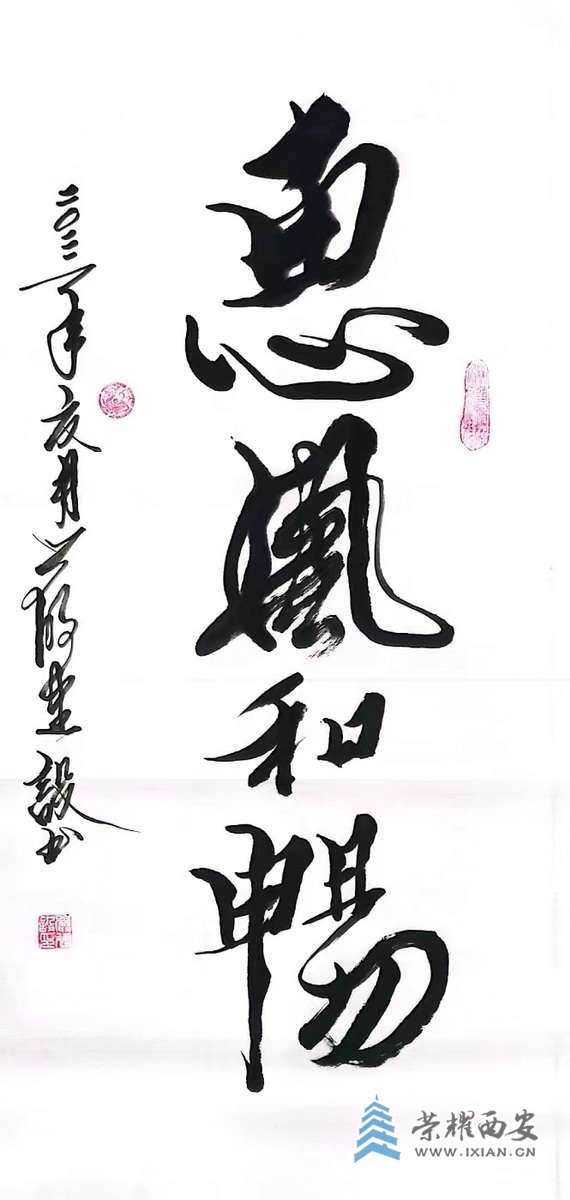 惠風和暢
二〇二二年夏月
設書
荣耀西安
WWW.IXIAN.CN